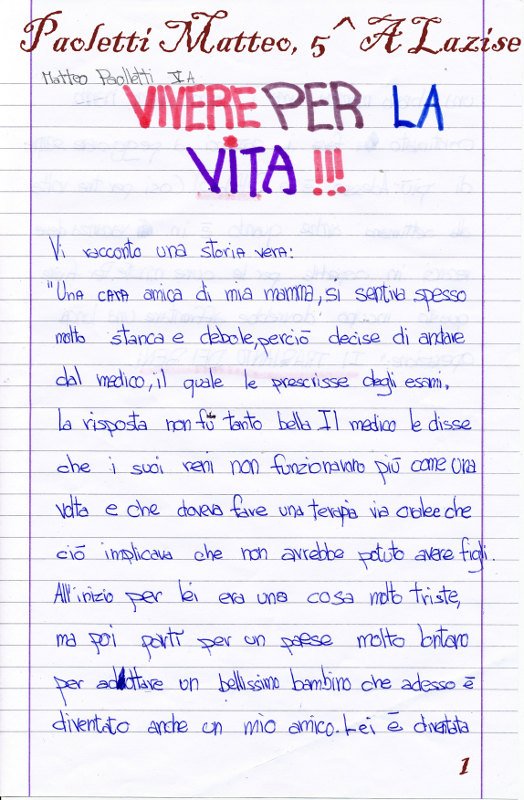 Paoletti Matteo, 5^ A Lazise
Matteo Paolletti V A
VIVERE PER LA
VITA !!!
Vi racconto una storia vera:
"Una cara amica di mia mamma, si sentiva spesso
molto stanca e debole, perciò decise di andare
dal medico, il quale le prescrisse degli esami.
La risposta non fù tanto bella Il medico le disse
che i suoi reni non funzionavano più come una
volta e che doveva fare una terapia via orale e che
ciò implicava che non avrebbe potuto avere figli.
All'inizio per lei era una cosa molto triste,
ma poi partì per un paese molto lontano
per adottare un bellissimo bambino che adesso è
diventato anche un mio amico. Lei è diventata
1